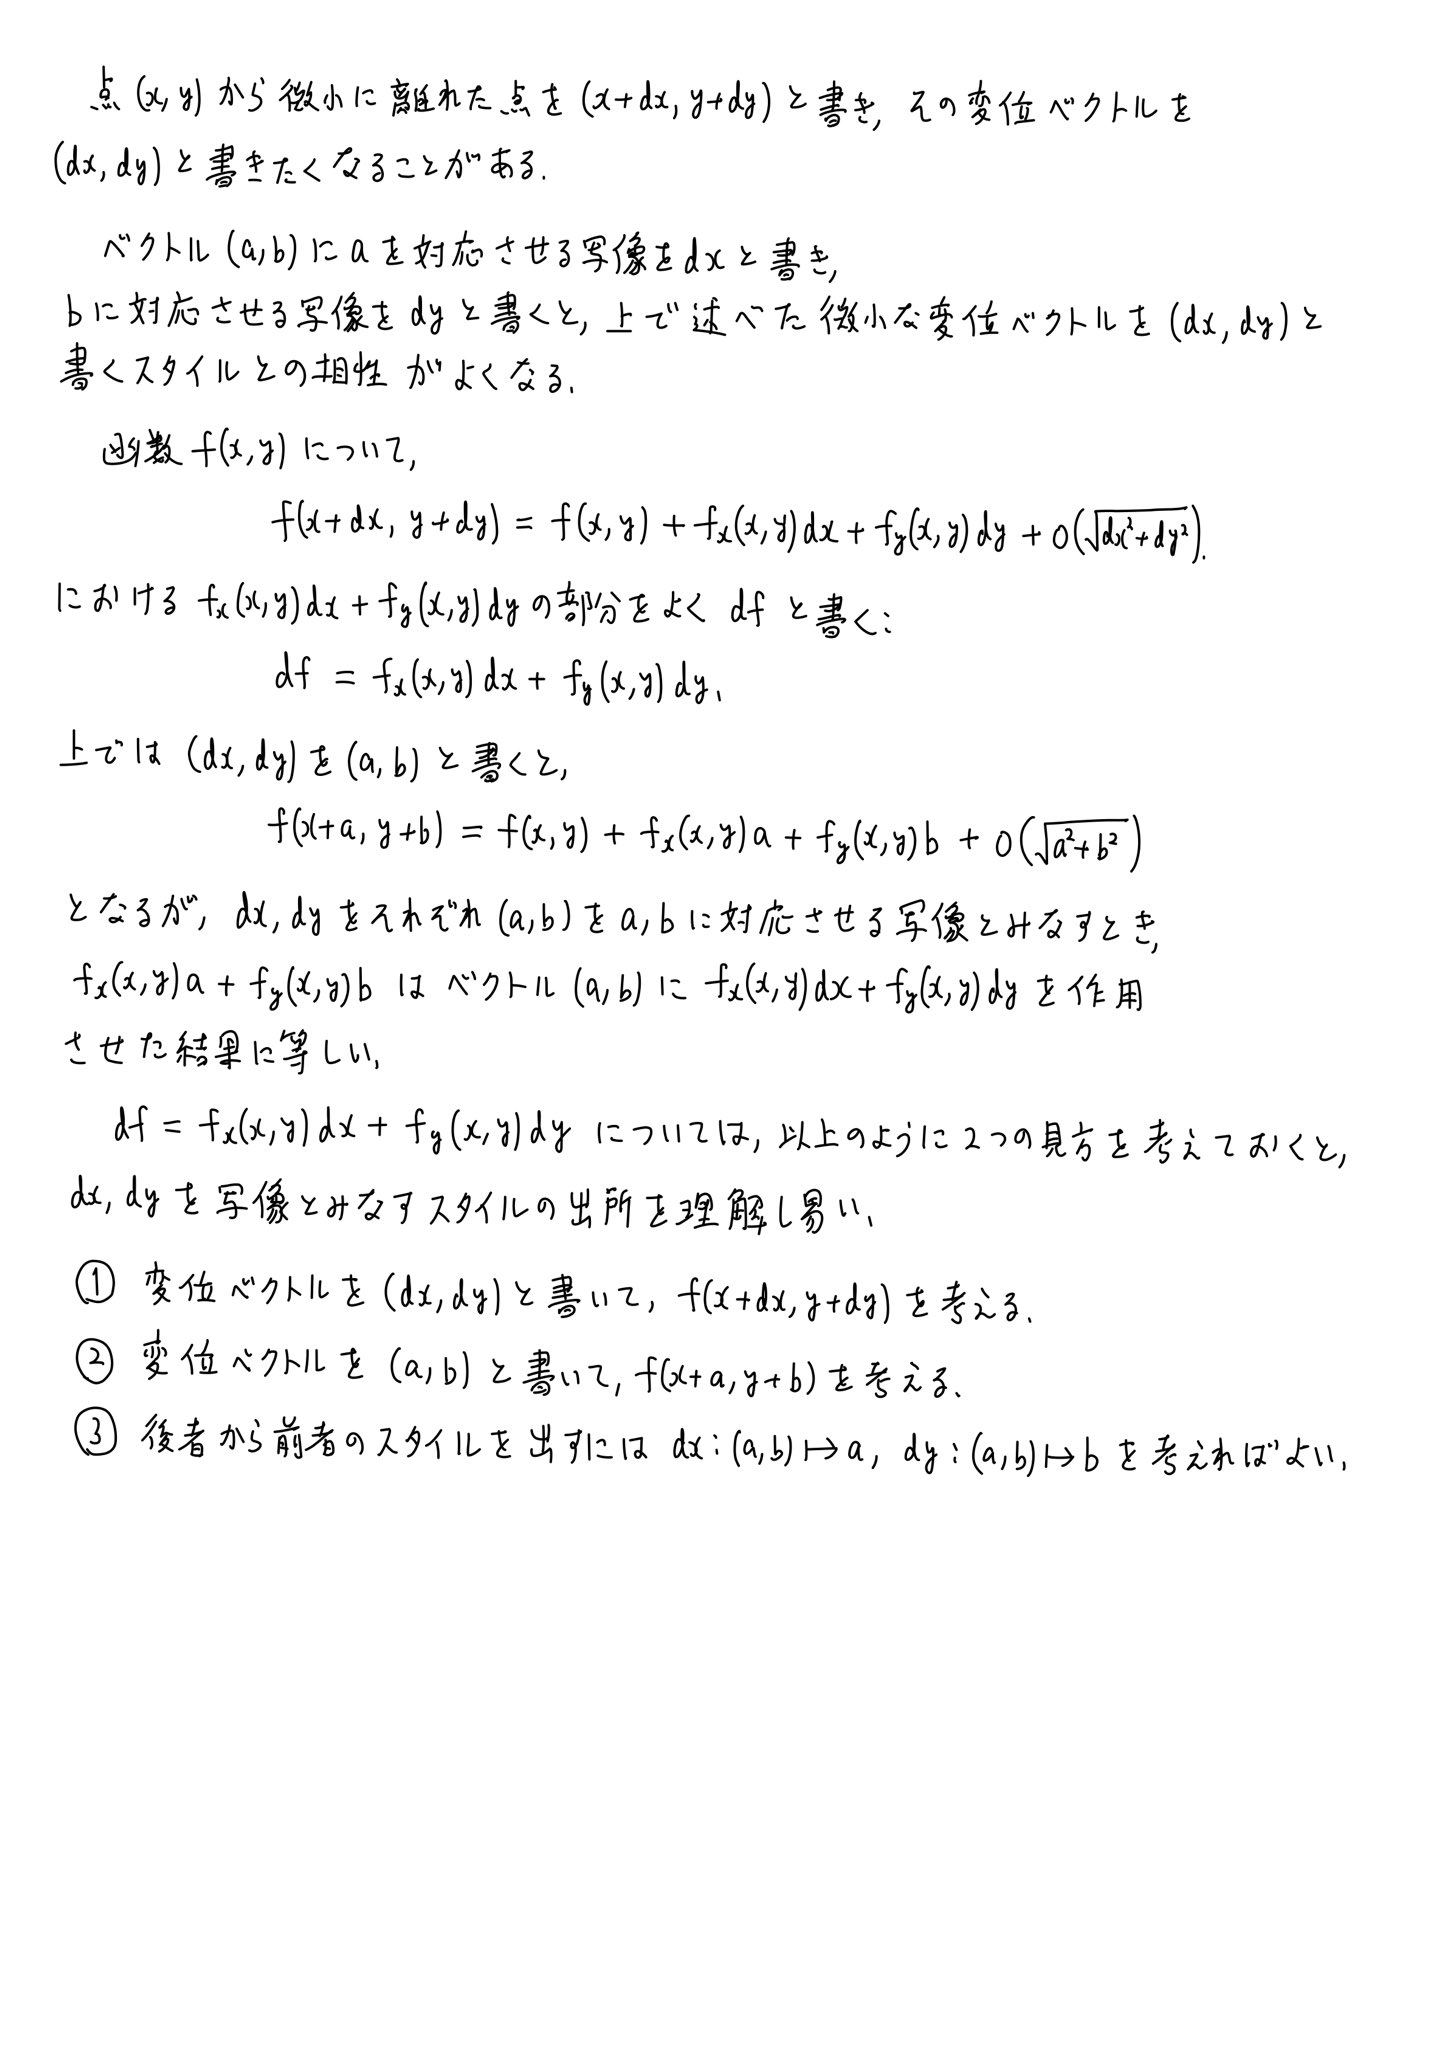 点(x,y)から微小に離れた点を(x+dx, y+dy)と書き, その変位ベクトルを
(dx, dy)と書きたくなることがある.
ベクトル(a,b)にaを対応させる写像をdxと書き,
bに対応させる写像をdyと書くと, 上で述べた微小な変位ベクトルを(dx, dy)と
書くスタイルとの相性がよくなる.
函数f(x,y)について,
f(x+dx, y+dy) = f(x,y) + f_x(x,y)dx + f_y(x,y)dy + o(√(dx²+dy²)).
における f_x(x,y)dx + f_y(x,y)dyの部分をよく df と書く:
df = f_x(x,y)dx + f_y(x,y)dy.
上では (dx, dy)を(a, b)と書くと,
f(x+a, y+b) = f(x,y) + f_x(x,y)a + f_y(x,y)b + o(√(a²+b²))
となるが, dx, dyをそれぞれ(a,b)をa,bに対応させる写像とみなすとき,
f_x(x,y)a + f_y(x,y)b は ベクトル(a,b)に f_x(x,y)dx + f_y(x,y)dyを作用
させた結果に等しい.
df = f_x(x,y)dx + f_y(x,y)dy については, 以上のように2つの見方を考えておくと,
dx, dyを写像とみなすスタイルの出所を理解し易い.
① 変位ベクトルを(dx,dy)と書いて, f(x+dx, y+dy)を考える.
② 変位ベクトルを(a,b)と書いて, f(x+a, y+b)を考える.
③ 後者から前者のスタイルを出すには dx:(a,b)↦a, dy:(a,b)↦b を考えればよい.